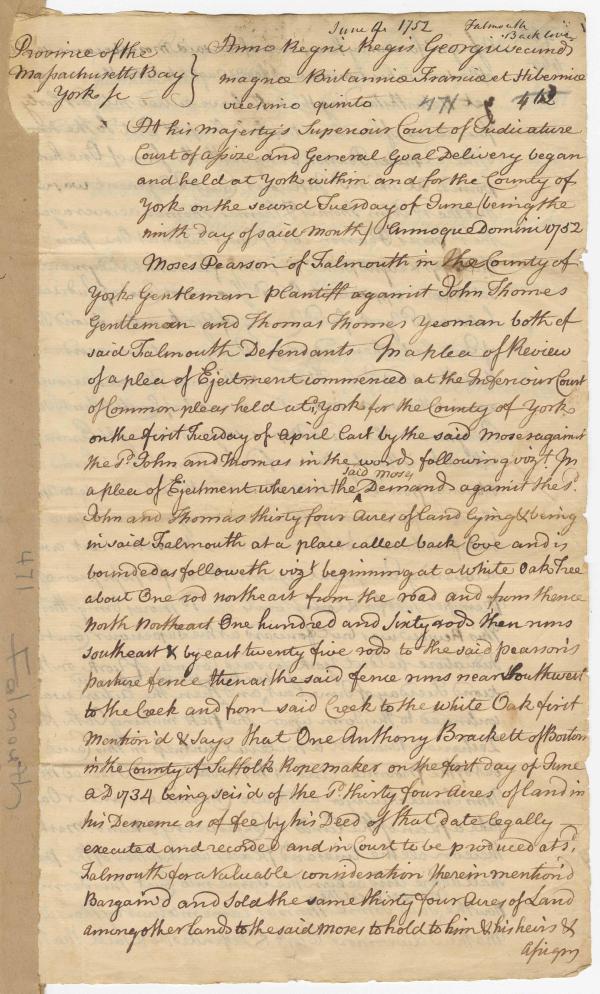 June 9. 1752
Falmouth
Back Cove
Province of the
Massachusetts Bay
York sc
Anno Regni Regis Georgii secundi
magnæ Britanniæ Franciæ et Hiberniæ
vicesimo quinto
471
412
At his Majesty's Superiour Court of Judicature
Court of assize and General Goal Delivery began
and held at York within and for the County of
York on the second Tuesday of June (being the
ninth day of said month) Annoque Domini 1752
Moses Pearson of Falmouth in the County of
York Gentleman Plantiff against John Thomes
Gentleman and Thomas Thomes yeoman both of
said Falmouth Defendants In a plea of Review
of a plea of Ejectment commenced at the Inferiour Court
of Common pleas held at York for the County of York
on the first Tuesday of April last by the said Moses against
the sd. John and Thomas in the words following vizt. In
a plea of Ejectment wherein the said Moses Demands against the sd.
John and Thomas thirty four Acres of land lying & being
in said Falmouth at a place called back Cove and is
bounded as followeth vizt. beginning at a White Oak Tree
about One rod northeast from the road and from thence
North Northeast One hundred and sixty rods then runs
Southeast & by east twenty five rods to the said pearson's
pasture fence then as the said fence runs near Southwest
to the Creek and from said Creek to the white Oak first
Mention'd & says that One Anthony Brackett of Boston
in the County of Suffolk Ropemaker on the first day of June
AD 1734 being seis'd of the sd. thirty four Acres of land in
his Demesne as of fee by his Deed of that date legally
executed and recorded and in Court to be produced at sd.
Falmouth for a Valuable consideration therein mention'd
Bargain'd and Sold the same thirty four Acres of Land
among other lands to the said Moses to hold to him & his heirs &
assigns
471
Falmouth